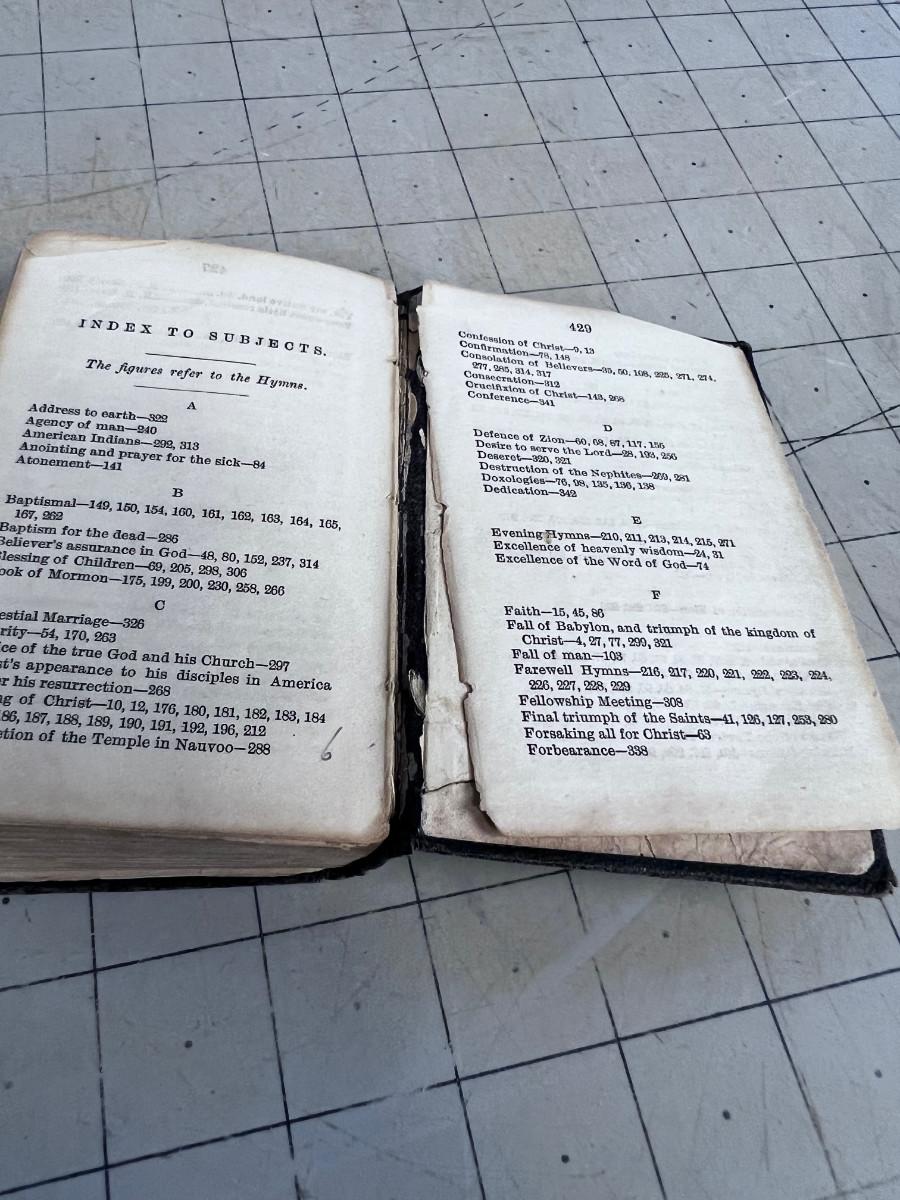 INDEX TO SUBJECTS.
The figures refer to the Hymns.
A
Address to earth—322
Agency of man—240
American Indians—292, 313
Anointing and prayer for the sick—84
Atonement—141
B
Baptismal—149, 150, 154, 160, 161, 162, 163, 164, 165,
167, 262
Baptism for the dead—286
Believer's assurance in God—48, 80, 152, 237, 314
lessing of Children—69, 205, 298, 306
ook of Mormon—175, 199, 200, 230, 258, 266
C
estial Marriage—326
rity—54, 170, 263
ice of the true God and his Church—297
st's appearance to his disciples in America
er his resurrection—268
ng of Christ—10, 12, 176, 180, 181, 182, 183, 184
186, 187, 188, 189, 190, 191, 192, 196, 212
etion of the Temple in Nauvoo—288
6
429
Confession of Christ—9, 13
Confirmation—78, 148
Consolation of Believers—35, 50, 108, 225, 271, 274,
277, 285, 314, 317
Consecration—312
Crucifixion of Christ—143, 268
Conference—341
D
Defence of Zion—60, 68, 87, 117, 156
Desire to serve the Lord—28, 193, 256
Deseret—320, 321
Destruction of the Nephites—269, 281
Doxologies—76, 98, 135, 136, 138
Dedication—342
E
Evening Hymns—210, 211, 213, 214, 215, 271
Excellence of heavenly wisdom—24, 31
Excellence of the Word of God—74
F
Faith—15, 45, 86
Fall of Babylon, and triumph of the kingdom of
Christ—4, 27, 77, 299, 321
Fall of man—103
Farewell Hymns—216, 217, 220, 221, 222, 223, 224,
226, 227, 228, 229
Fellowship Meeting—308
Final triumph of the Saints—41, 126, 127, 253, 280
Forsaking all for Christ—63
Forbearance—338